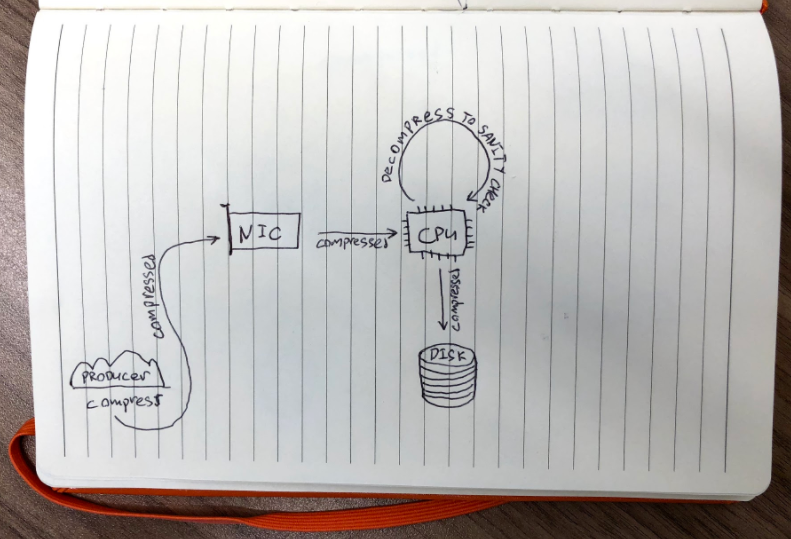 Decompress to Sanity check
NIC
compressed
CPU
compressed
compressed
DISK
Producer
compress